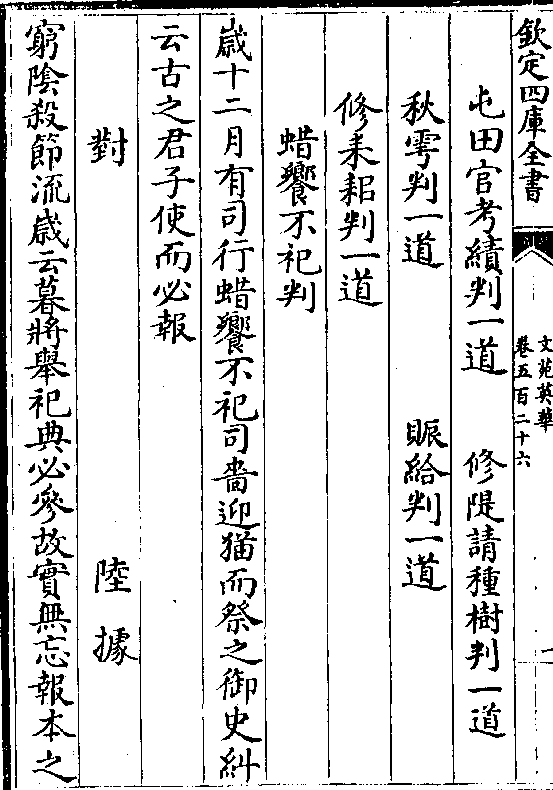 欽定四庫全書
文苑英華
卷五百二十六
屯田官考績判一道 修隄請種樹判一道
秋雩判一道 賑給判一道
修耒耜判一道
蜡饗不祀判
嵗十二月有司行蜡饗不祀司嗇迎猫而祭之御史糾
云古之君子使而必報
對 陸據
窮陰殺節流嵗云暮將舉祀典必參故實無忘報本之